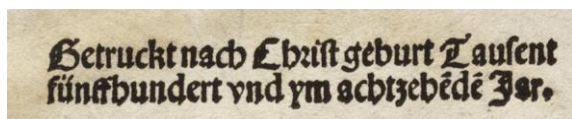 Getruckt nach Christ geburt Tausent
fünffhundert vnd ym achtzehẽdẽ Jar.